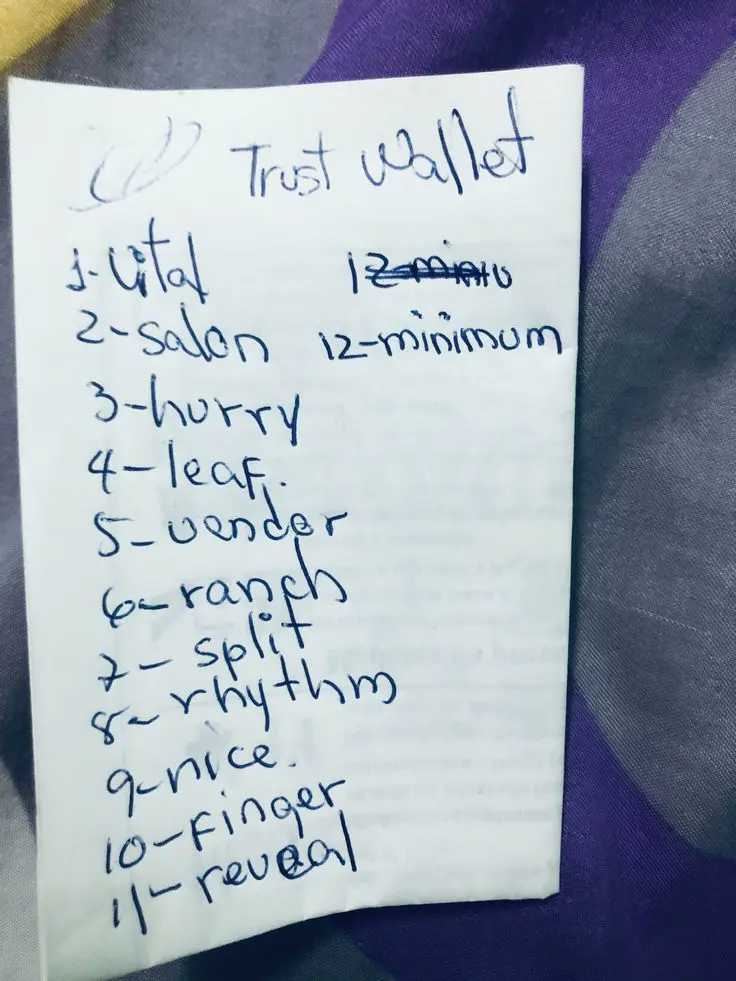 Trust Wallet
1-vital
2-salon 12-minimum
3-hurry
4-leaf.
5-vendor
6-ranch
7-split
8-rhythm
9-nice.
10-Finger
11-reveal